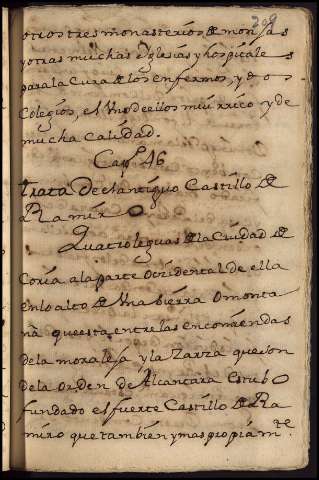 209
otros tres monasterios de monjas
y otras muchas eglesias y hospitales
para la Cura de los enfermos, y dos
Colegios, el Uno de ellos mui rrico y de
mucha Calidad.
Capº 46
Trata del antiguo Castillo de
Ramiro
Quatro leguas de la Ciudad de
Coria a la parte Ocçidental de ella
en lo alto de Una sierra O monta
ña que esta entre las encomiendas
de la moraleja y la Zarza que son
de la Orden de Alcantara Estubo
fundado el fuerte Castillo de Ra
miro que tambien y mas propiamte.